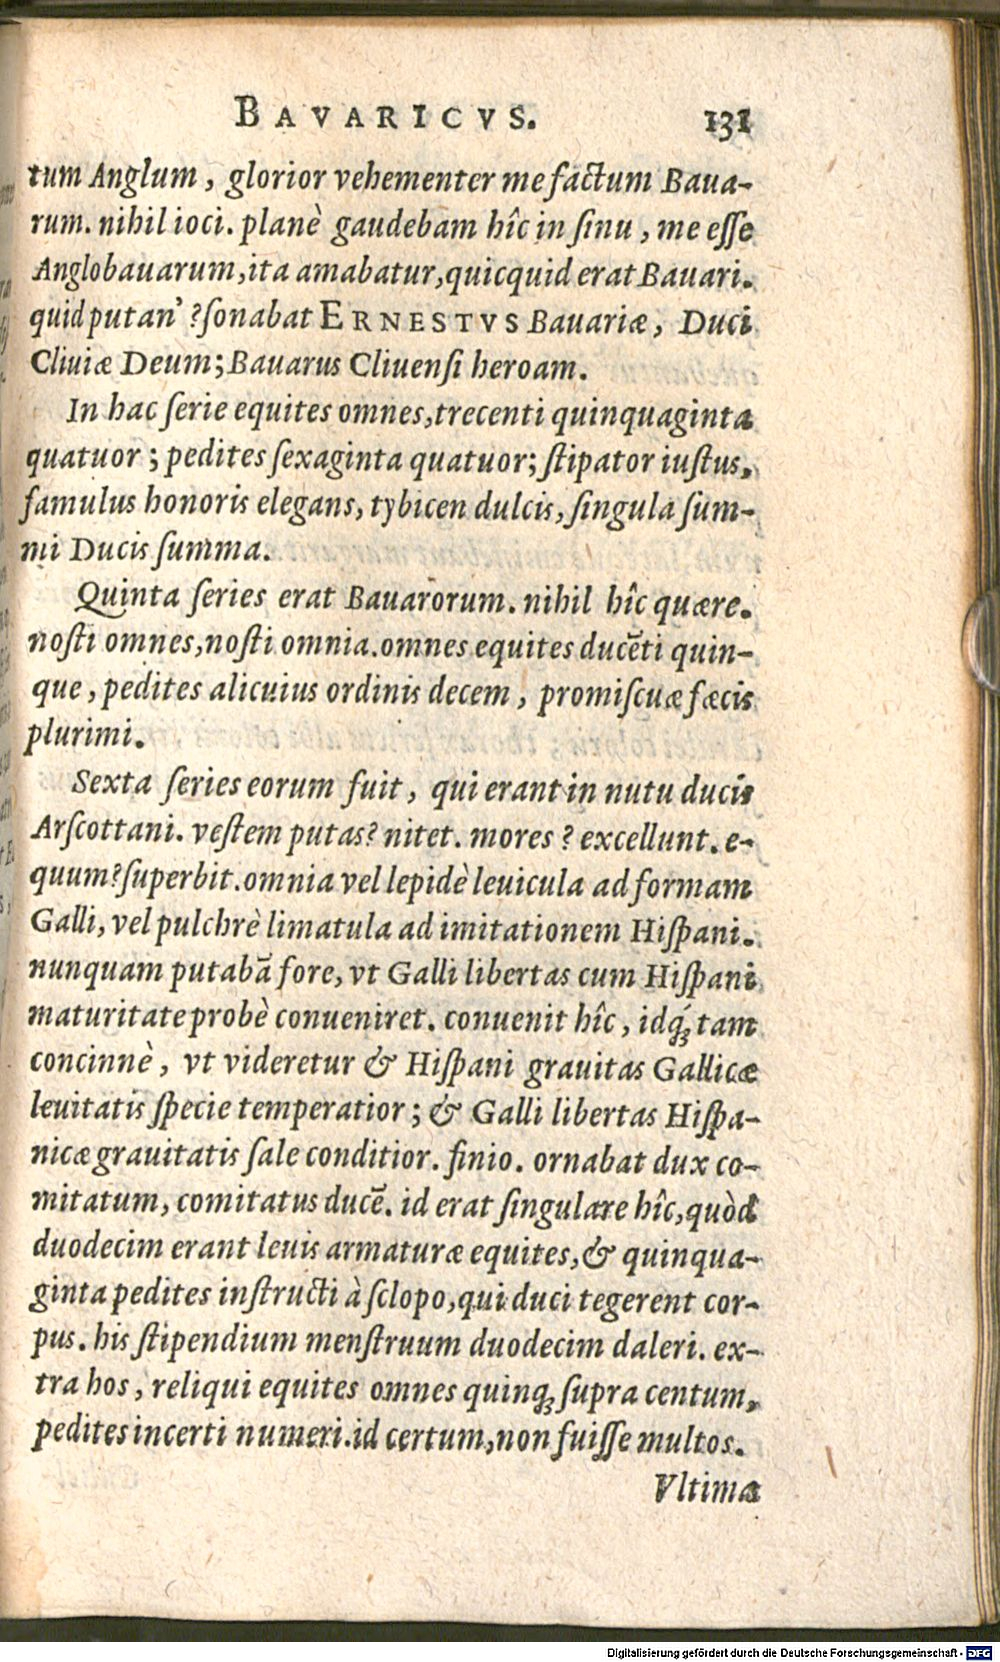 BAVARICVS. 131
tum Anglum, glorior vehementer me factum Baua-
rum. nihil ioci. planè gaudebam hîc in ſinu, me eſſe
Anglobauarum, ita amabatur, quicquid erat Bauari.
quid putan'? ſonabat ERNESTVS Bauariæ, Duci
Cliuiæ Deum; Bauarus Cliuenſi heroam.
In hac ſerie equites omnes, trecenti quinquaginta
quatuor; pedites ſexaginta quatuor; ſtipator iuſtus,
famulus honoris elegans, tybicen dulcis, ſingula ſum-
mi Ducis ſumma.
Quinta ſeries erat Bauarorum. nihil hîc quære.
noſti omnes, noſti omnia. omnes equites ducēti quin-
que, pedites alicuius ordinis decem, promiſcuæ fæcis
plurimi.
Sexta ſeries eorum fuit, qui erant in nutu ducis
Arſcottani. veſtem putas? nitet. mores? excellunt. e-
quum? ſuperbit. omnia vel lepidè leuicula ad formam
Galli, vel pulchrè limatula ad imitationem Hiſpani.
nunquam putabā fore, vt Galli libertas cum Hiſpani
maturitate probè conueniret. conuenit hîc, idq́ꝫ tam
concinnè, vt videretur & Hiſpani grauitas Gallicæ
leuitatis ſpecie temperatior; & Galli libertas Hiſpa-
nicæ grauitatis ſale conditior. finio. ornabat dux co-
mitatum, comitatus ducē. id erat ſingulare hîc, quòd
duodecim erant leuis armaturæ equites, & quinqua-
ginta pedites inſtructi à ſclopo, qui duci tegerent cor-
pus. his ſtipendium menſtruum duodecim daleri. ex-
tra hos, reliqui equites omnes quinqꝫ ſupra centum,
pedites incerti numeri. id certum, non fuiſſe multos.
Vltima
Digitalisierung gefördert durch die Deutsche Forschungsgemeinschaft - DFG